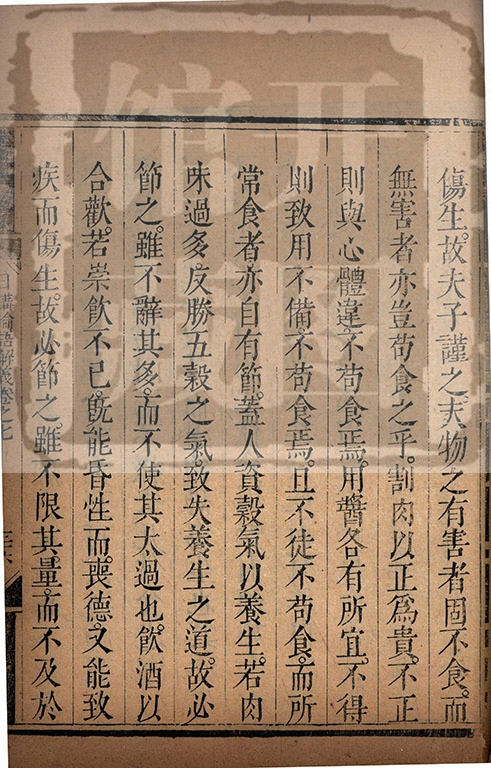 傷生。故夫子謹之。夫物之有害者。固不食。而
無害者。亦豈苟食之乎。割肉以正為貴。不正
則與心體違。不苟食焉。用醬各有所宜。不得
則致用不備。不苟食焉。且不徒不苟食。而所
常食者。亦自有節。蓋人資穀氣以養生。若肉
味過多。反勝五穀之氣。致失養生之道。故必
節之。雖不辭其多。而不使其太過也。飲酒以
合歡。若崇飲不已。既能昏性而喪德。又能致
疾而傷生。故必節之。雖不限其量。而不及於
日講論語解義卷之七